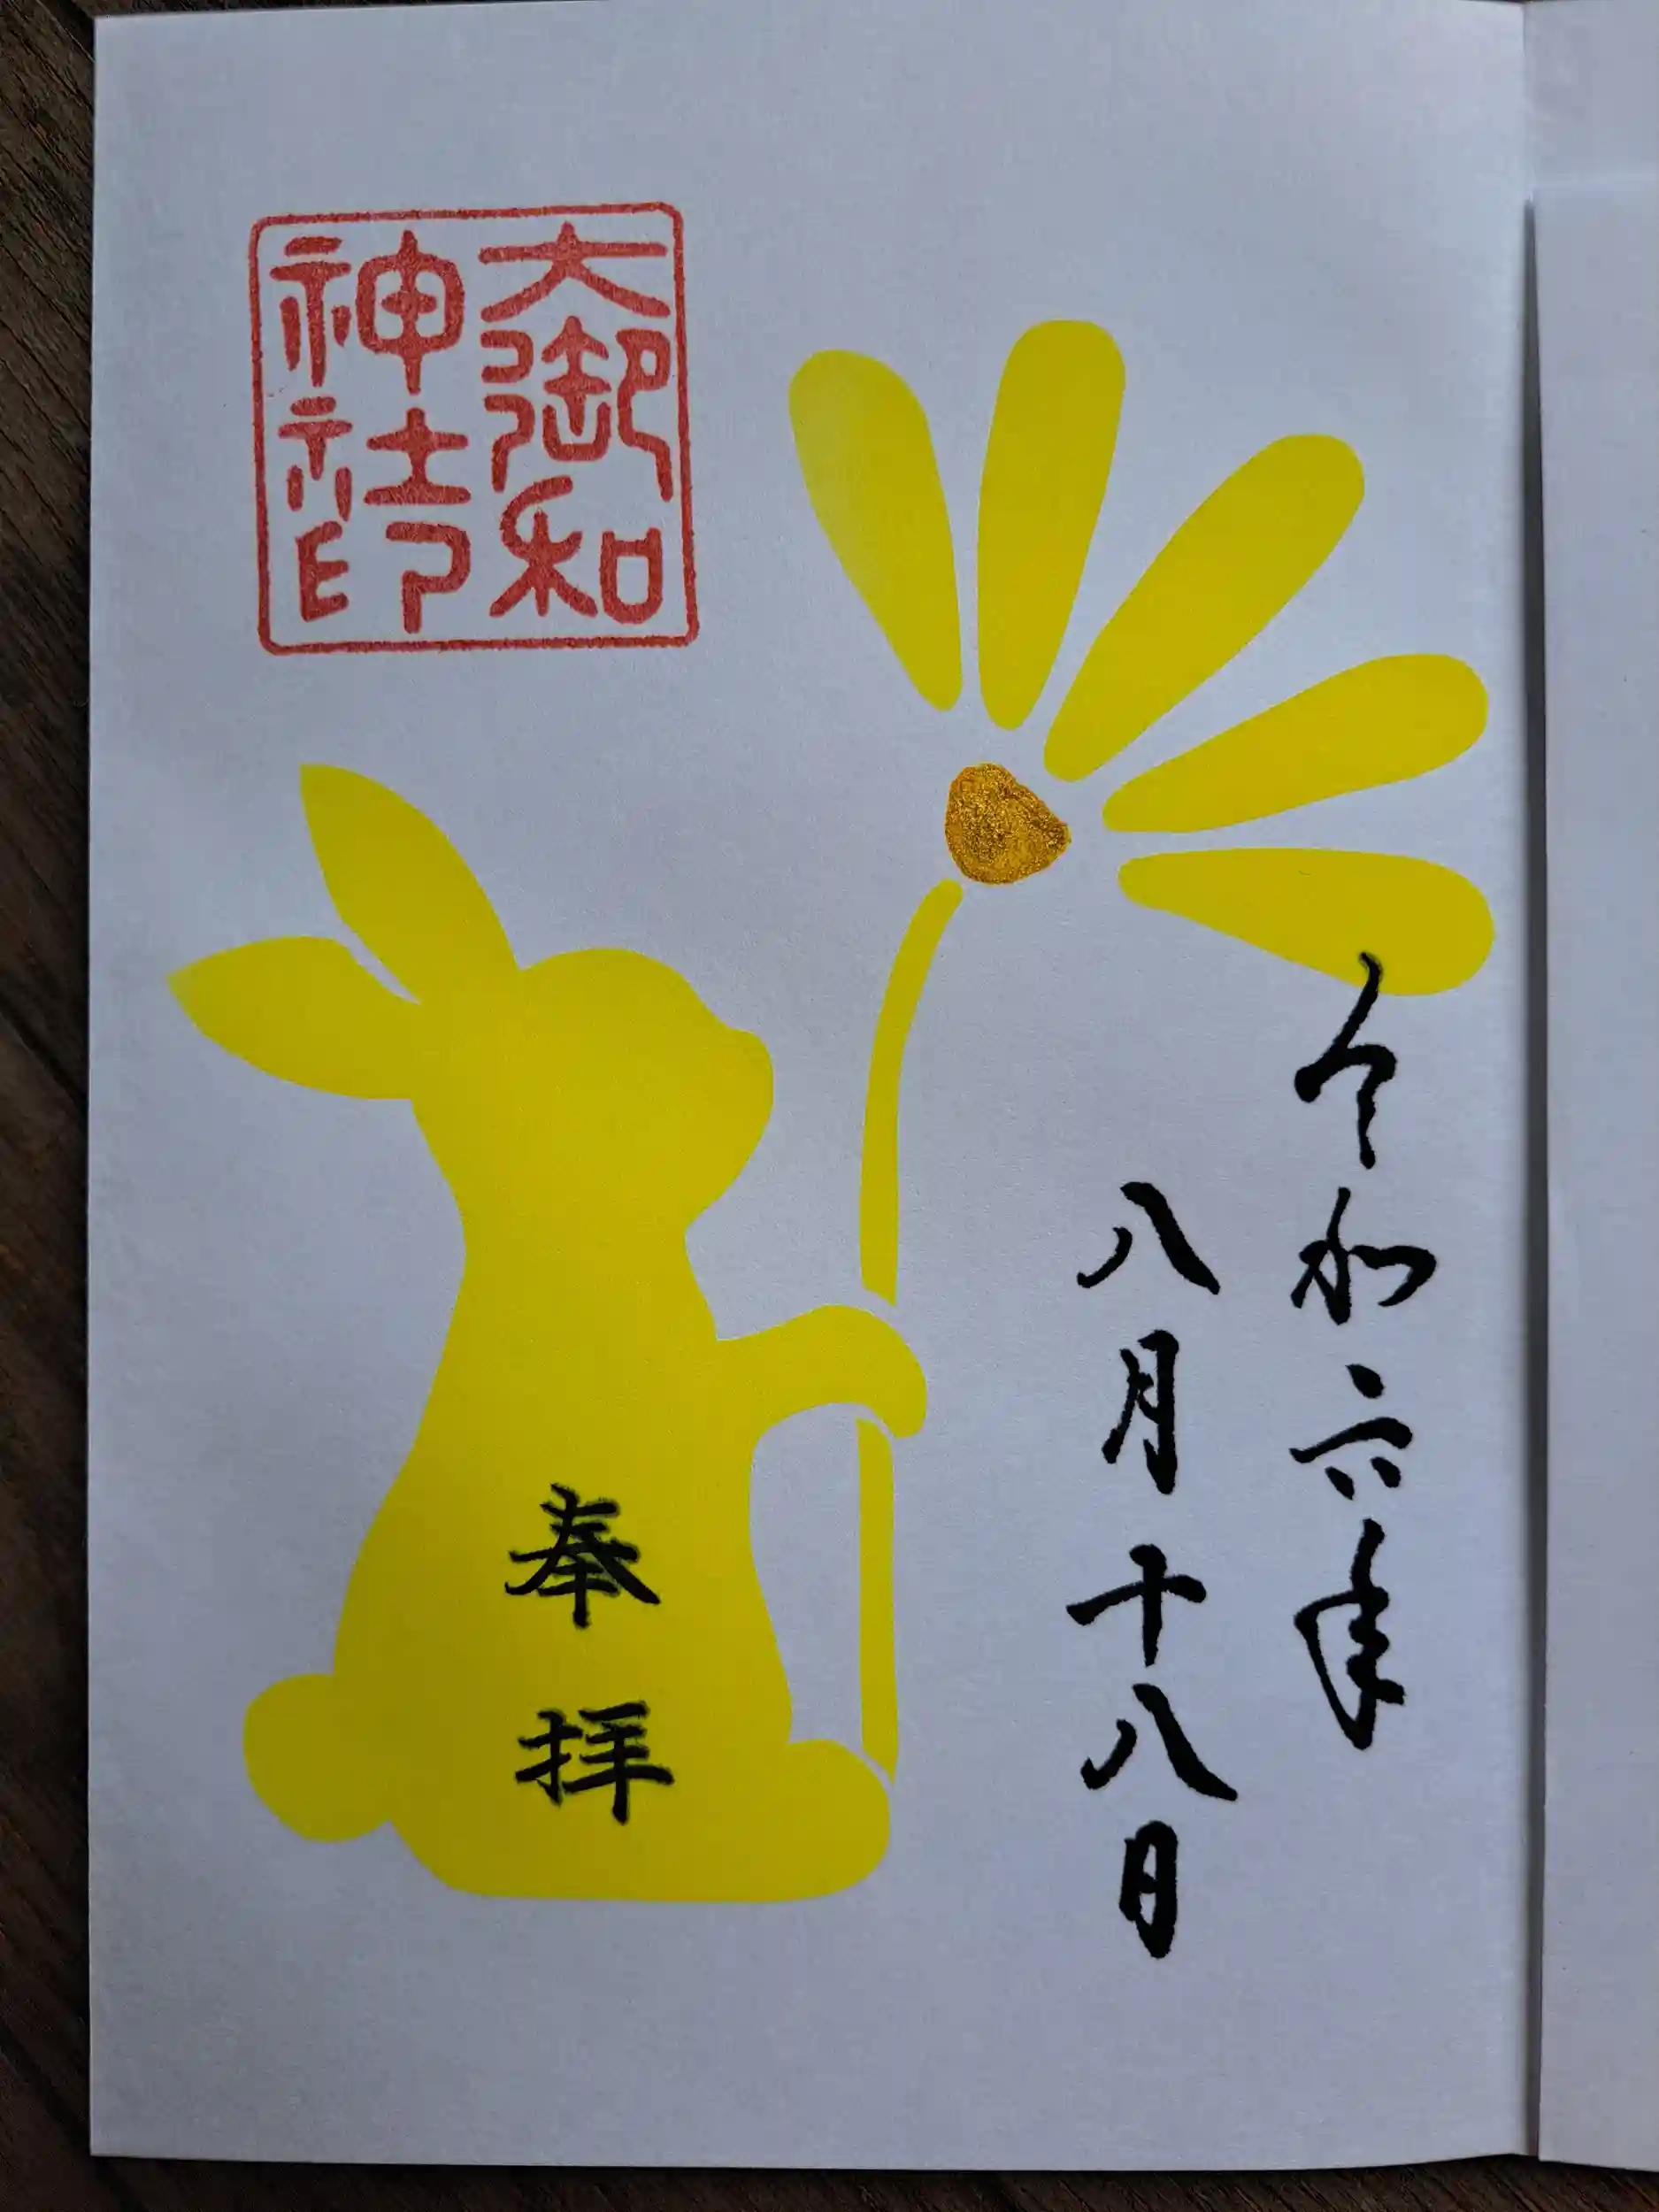 令和六年
八月十八日
奉拝
大御和
神社印